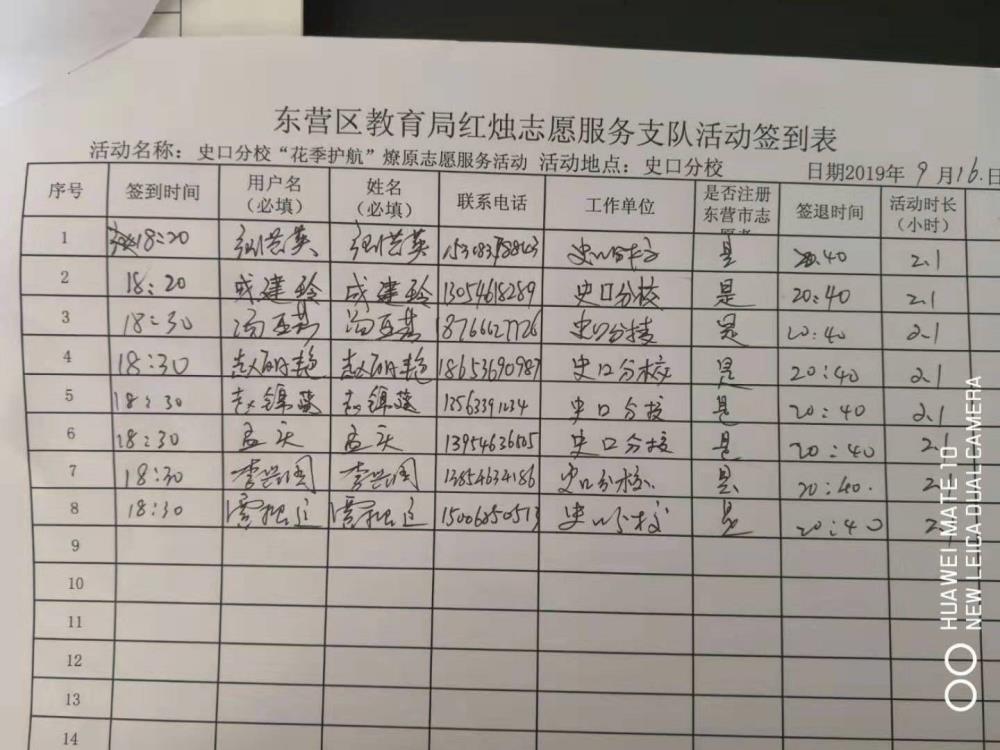 东营区教育局红烛志愿服务支队活动签到表
活动名称：史口分校“花季护航”燎原志愿服务活动 活动地点：史口分校 日期2019年 9 月 16 日
序号 签到时间 用户名（必填） 姓名（必填） 联系电话 工作单位 是否注册东营市志愿者 签退时间 活动时长（小时）
1 18:20 史口分校 是 20:40 2.1
2 18:20 成建玲 成建玲 13054618289 史口分校 是 20:40 2.1
3 18:30 18766627726 史口分校 是 20:40 2.1
4 18:30 赵丽艳 赵丽艳 18653690987 史口分校 是 20:40 2.1
5 18:30 13563391034 史口分校 是 20:40 2.1
6 18:30 孟庆 孟庆 13954636505 史口分校 是 20:40 2.1
7 18:30 李兴国 李兴国 13854634186 史口分校 是 20:40.
8 18:30 15006850513 史口分校 是 20:40
9
10
11
12
13
14
HUAWEI MATE 10
NEW LEICA DUAL CAMERA